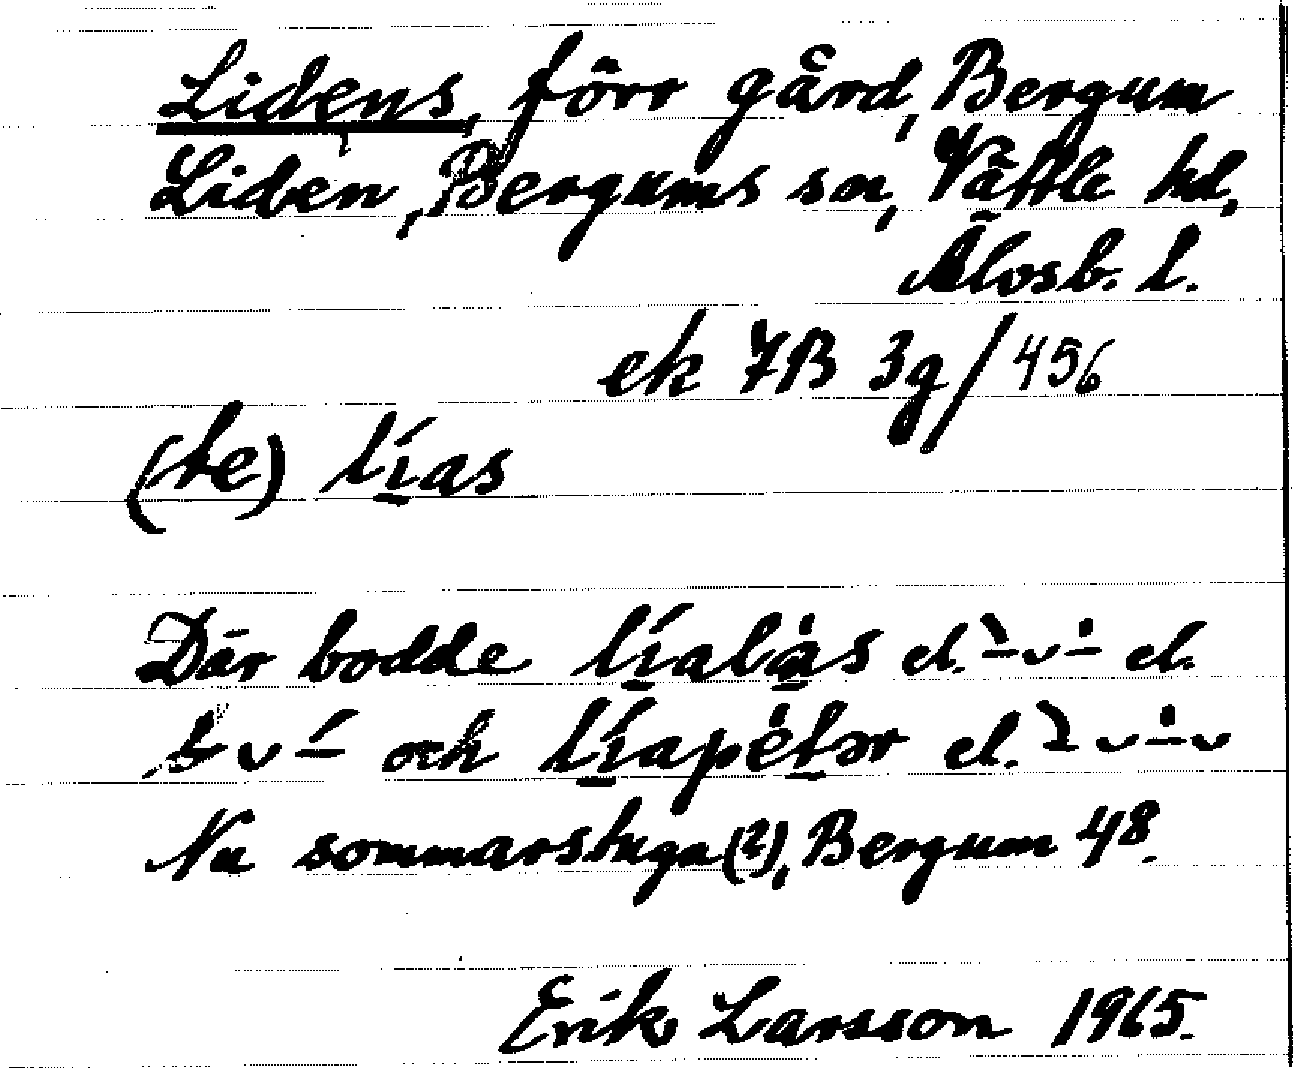 Lidens, förr gård, Bergum
Liden, Bergums sn, Vättle hd,
Älvsb. l.
ek 7B 3g/456
(te) lías
Där bodde líalàs el. – ᴗ – el.
– ᴗ – och líapétər el. – ᴗ – ᴗ
Nu sommarstuga (?), Bergum 48.
Erik Larsson 1965.